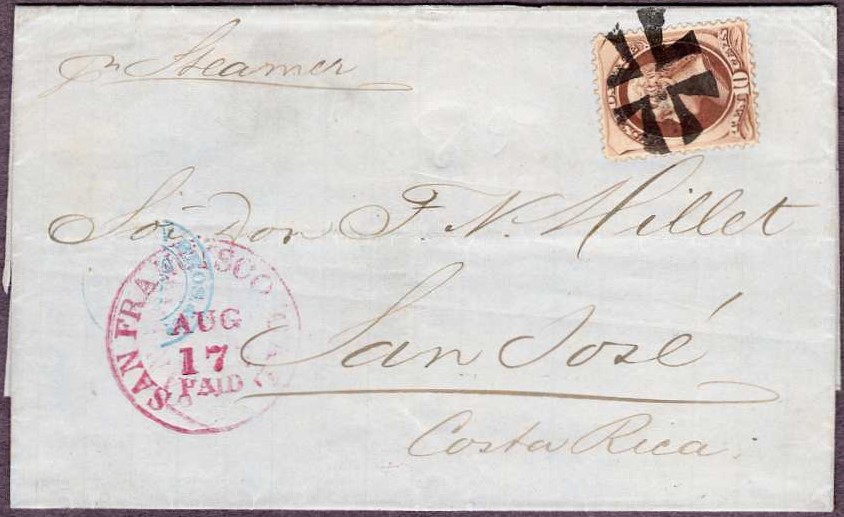 pr Steamer
Sör Don F. N. Millet
San José
Costa Rica.
SAN FRANCISCO CAL
AUG
17
PAID